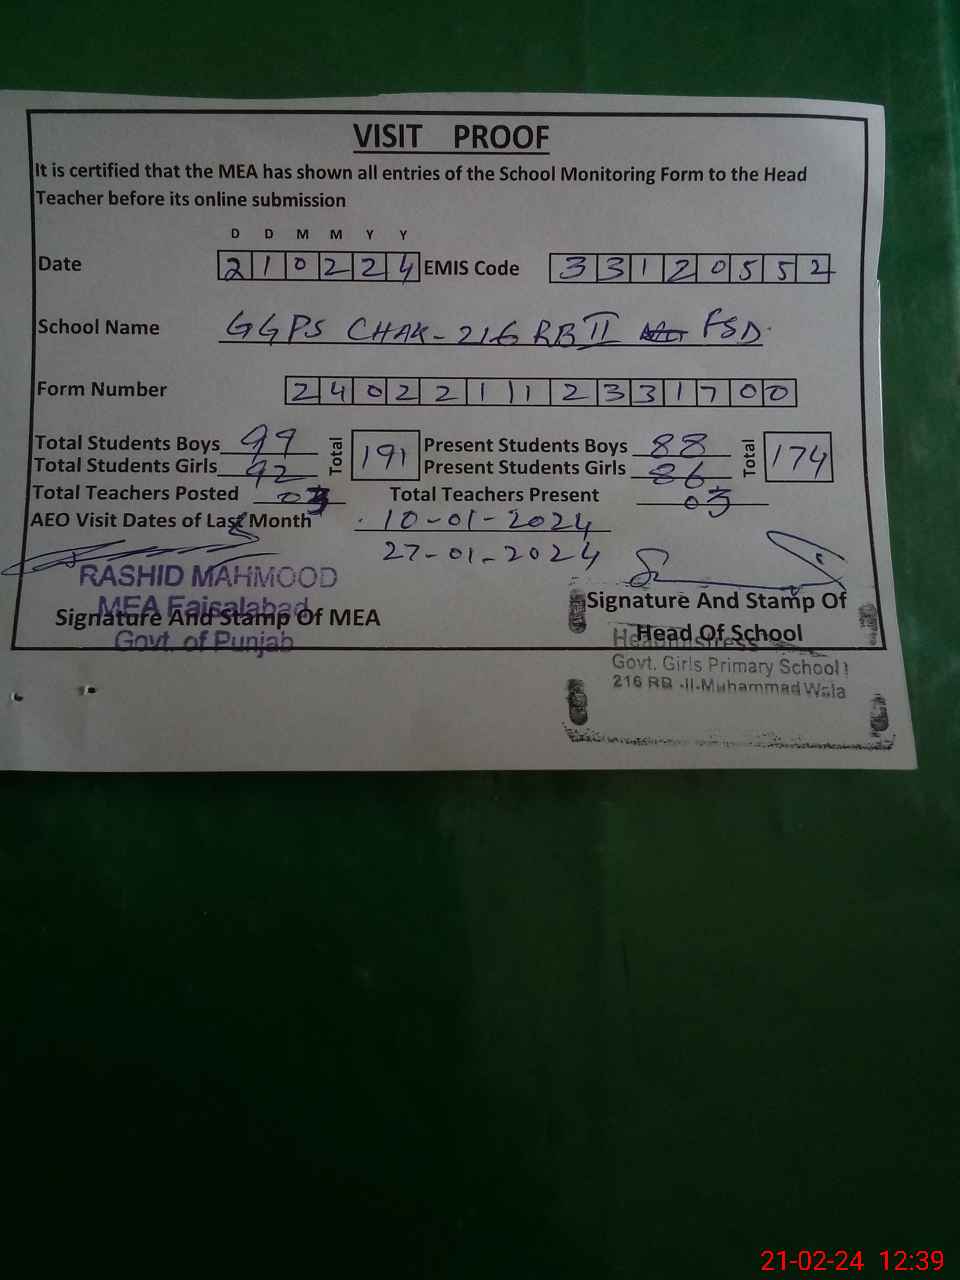 VISIT PROOF
It is certified that the MEA has shown all entries of the School Monitoring Form to the Head
Teacher before its online submission
D D M M Y Y
Date 210224 EMIS Code 33120552
School Name GGPS CHAK-216 RB II FSD.
Form Number 240221112331700
Total Students Boys 99 Total 191 Present Students Boys 88 Total 174
Total Students Girls 92 Present Students Girls 86
Total Teachers Posted 03 Total Teachers Present 03
AEO Visit Dates of Last Month 10-01-2024
27-01-2024
RASHID MAHMOOD
MEA Faisalabad
Govt. of Punjab
Signature And Stamp Of MEA
Signature And Stamp Of
Head Of School
Headmistress
Govt. Girls Primary School
216 RB -II-Muhammad Wala
21-02-24 12:39